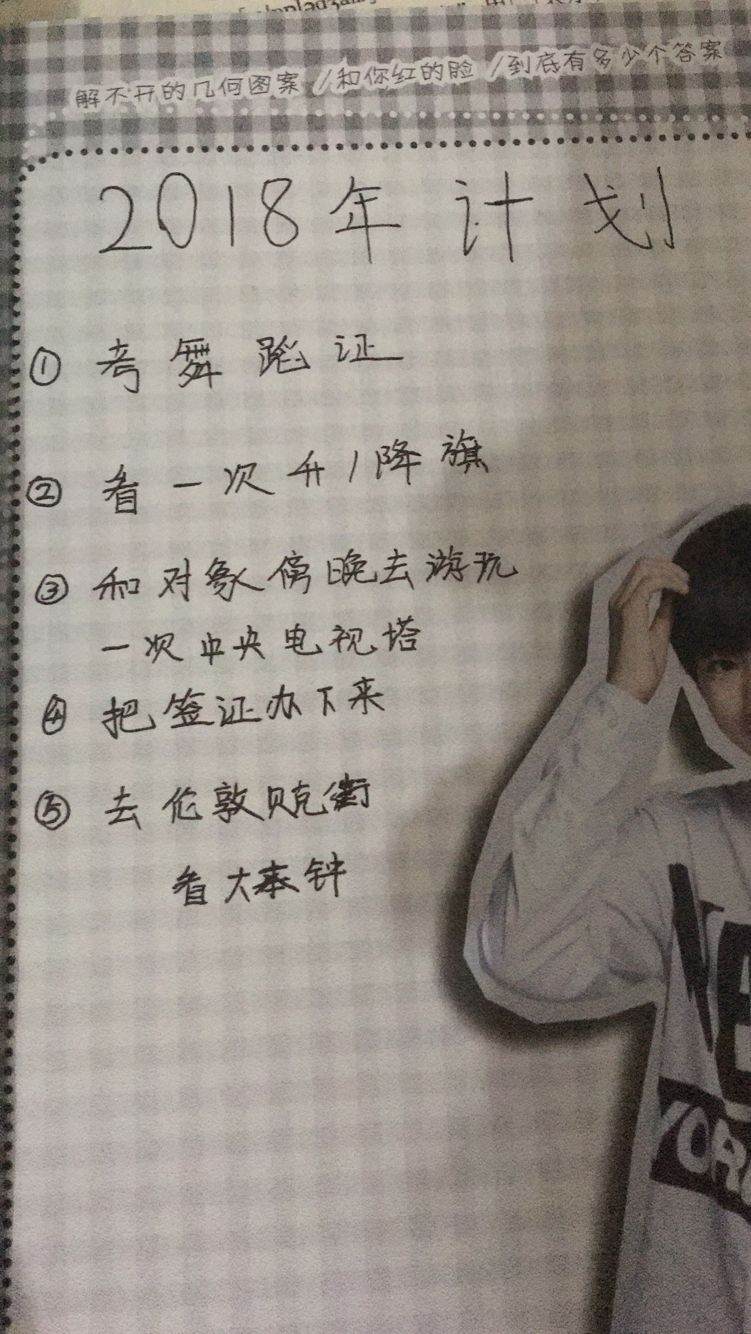 解不开的几何图案/和你红的脸/到底有多少个答案
2018年计划
① 考舞蹈证
② 看一次升/降旗
③ 和对象傍晚去游玩
一次中央电视塔
④ 把签证办下来
⑤ 去伦敦贝克街
看大本钟
NE
YOR